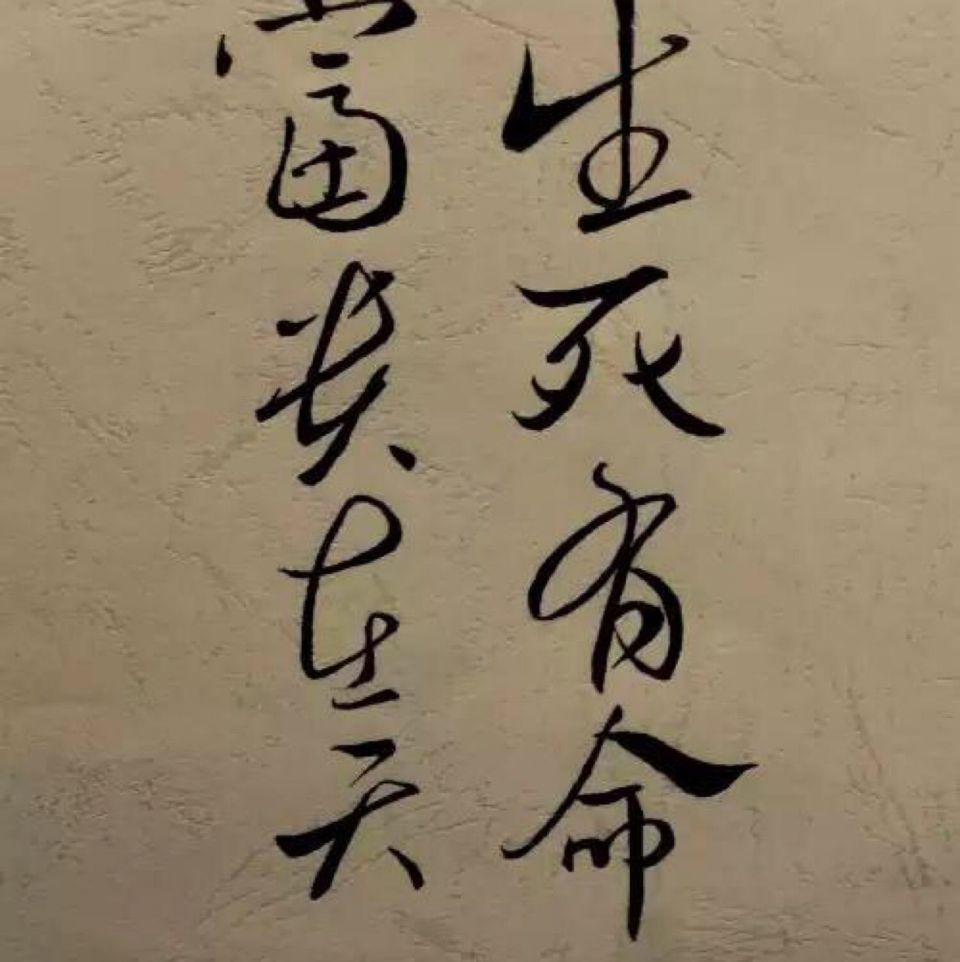 生死有命
富贵在天